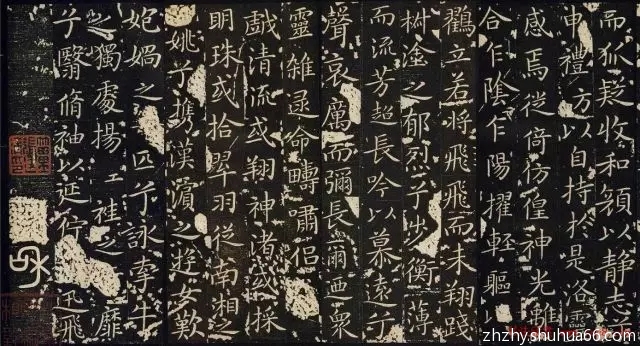 而狐疑收和顔以静志
申禮方以自持於是洛靈
感焉徙倚彷徨神光離
合乍陰乍陽擢輕軀以
鸛立若將飛飛而未翔踐
椒塗之郁烈兮步衡薄
而流芳超長吟以慕遠兮
聲哀厲而彌長爾迺眾
靈雜遝命疇嘯侣
戲清流或翔神渚或採
明珠或拾翠羽從南湘之
姚兮攜漢濱之遊女歎
妃媧之匹兮詠牽牛
之獨處揚袿之靡
兮翳脩袖以延佇迅飛
zhzhy.shuhua66.com